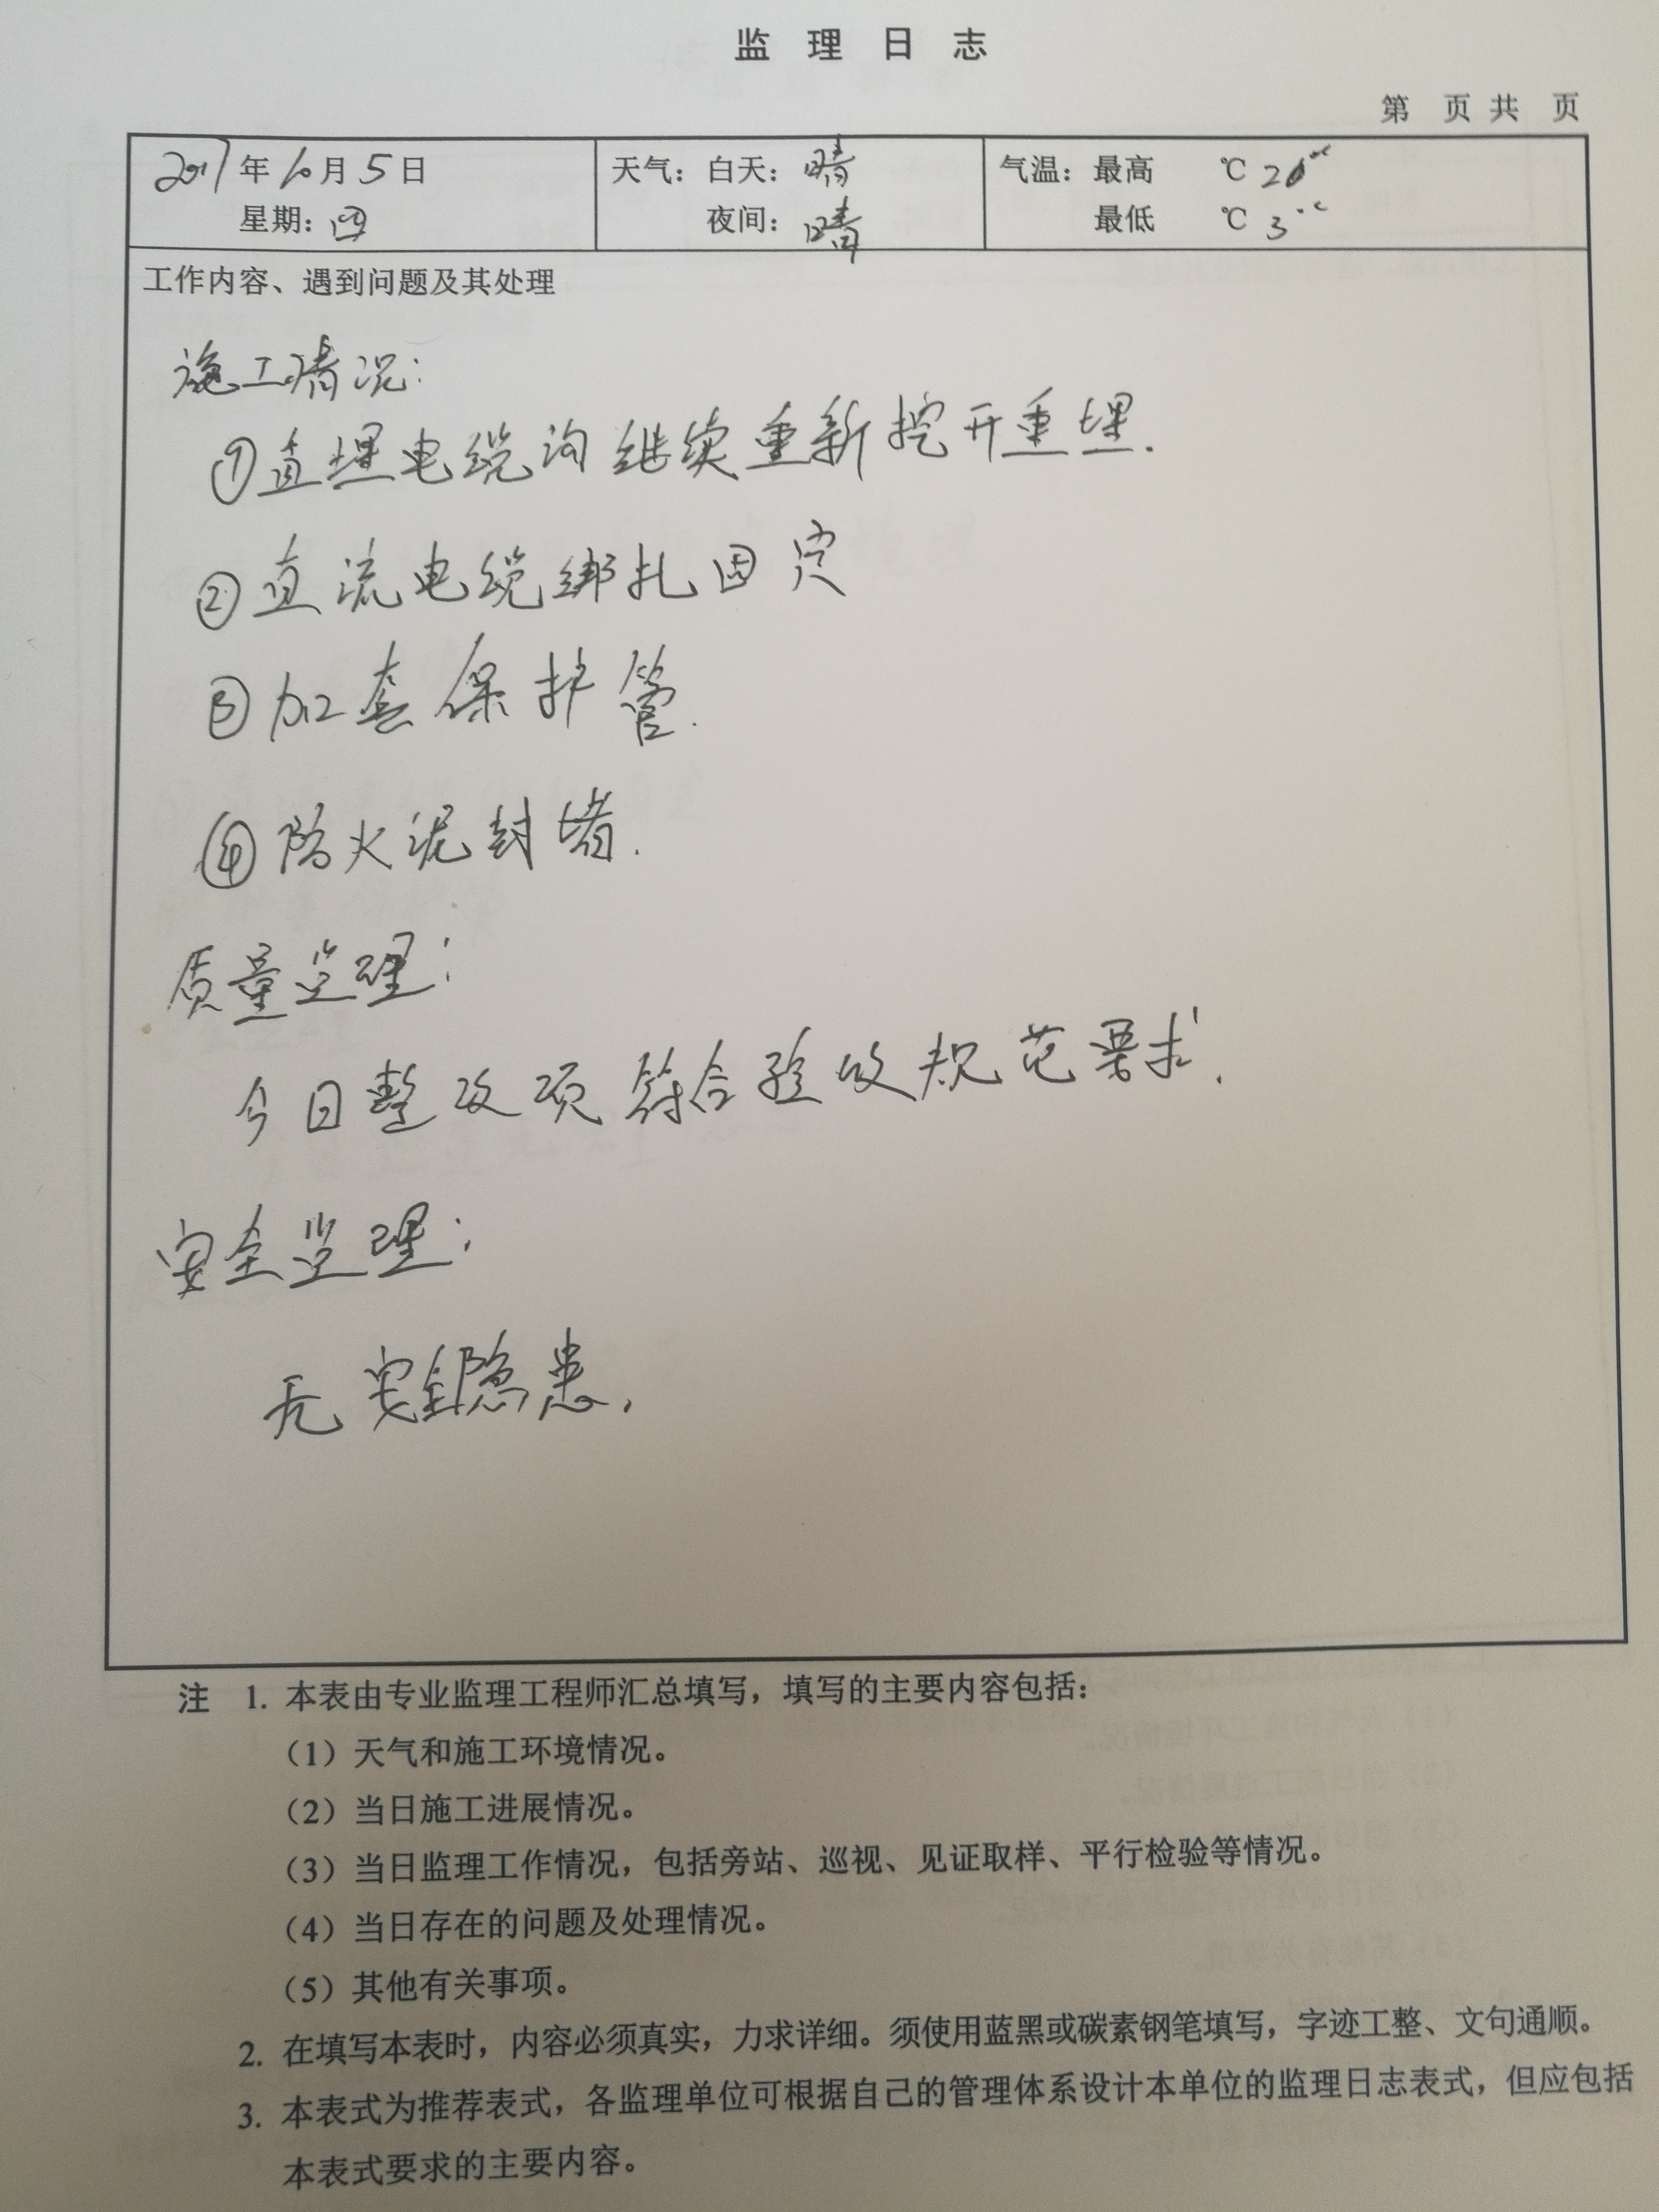 监理日志
第 页 共 页
2017年10月5日
星期：四
天气：白天：晴
夜间：晴
气温：最高 ℃
最低 ℃ 3℃
工作内容、遇到问题及其处理
施工情况：
①直埋电缆沟继续重新挖开重埋.
②直流电缆绑扎固定
③加套保护管.
④防火泥封堵.
质量监理：
今日整改项符合验收规范要求.
安全监理：
无安全隐患.
注 1. 本表由专业监理工程师汇总填写，填写的主要内容包括：
（1）天气和施工环境情况。
（2）当日施工进展情况。
（3）当日监理工作情况，包括旁站、巡视、见证取样、平行检验等情况。
（4）当日存在的问题及处理情况。
（5）其他有关事项。
2. 在填写本表时，内容必须真实，力求详细。须使用蓝黑或碳素钢笔填写，字迹工整、文句通顺。
3. 本表式为推荐表式，各监理单位可根据自己的管理体系设计本单位的监理日志表式，但应包括
本表式要求的主要内容。